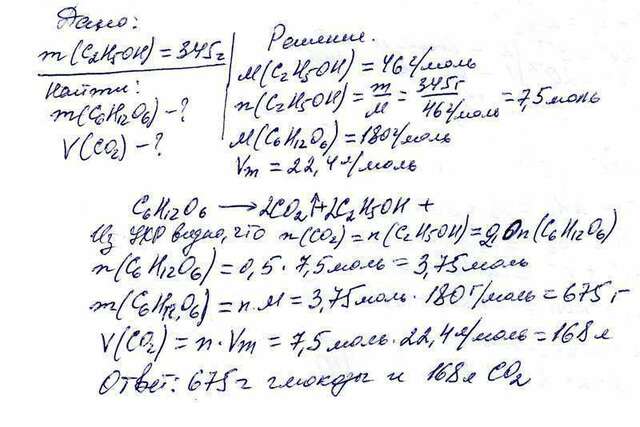 Дано:
m(C2H5OH) = 345г
Найти:
m(C6H12O6) - ?
V(CO2) - ?
Решение.
M(C2H5OH) = 46 г/моль
n(C2H5OH) = m/M = 345г/46 г/моль = 7,5 моль
M(C6H12O6) = 180 г/моль
Vm = 22,4 л/моль
C6H12O6 → 2CO2↑ + 2C2H5OH +
Из УХР видно, что n(CO2) = n(C2H5OH) = 2,0n(C6H12O6)
n(C6H12O6) = 0,5 · 7,5 моль = 3,75 моль
m(C6H12O6) = n · M = 3,75 моль · 180 г/моль = 675 г
V(CO2) = n · Vm = 7,5 моль · 22,4 л/моль = 168 л
Ответ: 675 г глюкозы и 168 л CO2